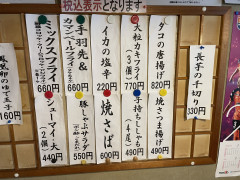 税込表示となります
タコの唐揚げ
820円
大粒カキフライ
(3個)
770円
イカの塩辛
220円
手羽先&
カマンベールフライ
660円
ミックスフライ
660円
長芋の千切り
330円
焼さつま揚げ
490円
子持ちししゃも
(4尾)
490円
焼きそば
600円
豚しゃぶサラダ
550円
シューマイ大
(6個)
440円
のゆで玉子
160円